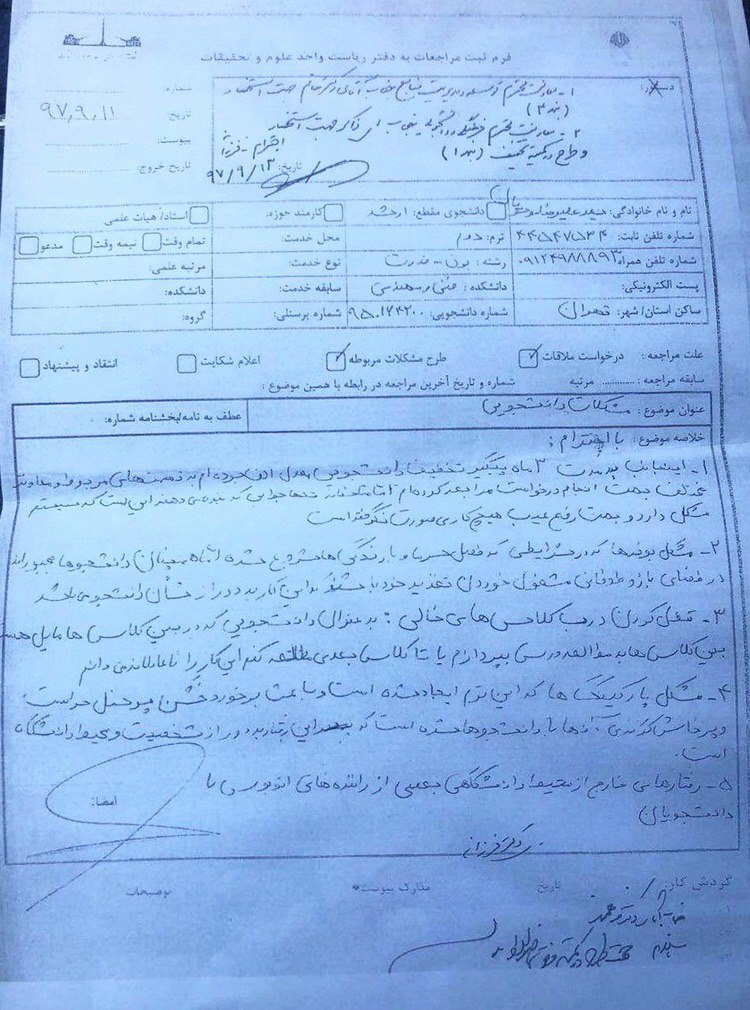 فرم ثبت مراجعات به دفتر ریاست واحد علوم و تحقیقات
شماره:
تاریخ: ۹۷,۹,۱۱
پیوست:
تاریخ خروج:
۱- معاونت محترم توسعه و مدیریت منابع جناب آقای دکتر جهت استحضار
(بند ۴)
۲- معاونت محترم فرهنگی و دانشجویی جناب آقای دکتر جهت استحضار
و طرح در کمیته تخفیف (بند ۱)
تاریخ: ۹۷/۹/۱۲
نام و نام خانوادگی: سید علیرضا دانشجوی مقطع: ارشد کارمند حوزه: استاد/هیات علمی
شماره تلفن ثابت: ۴۴۵۴۷۵۳۴ ترم: دوم محل خدمت: تمام وقت نیمه وقت مدعو
شماره تلفن همراه: ۰۹۱۲۴۹۸۸۸۹۳ رشته: برق - قدرت نوع خدمت: مرتبه علمی:
پست الکترونیکی: دانشکده: فنی و مهندسی سابقه خدمت: دانشکده:
ساکن استان/شهر: تهران شماره دانشجویی: شماره پرسنلی: گروه:
علت مراجعه: درخواست ملاقات طرح مشکلات مربوطه اعلام شکایت انتقاد و پیشنهاد
سابقه مراجعه: ............ مرتبه شماره و تاریخ آخرین مراجعه در رابطه با همین موضوع :
عنوان موضوع: مشکلات دانشجویی عطف به نامه/بخشنامه شماره:
خلاصه موضوع: با احترام:
۱- اینجانب به مدت ۳ ماه پیگیر تخفیف دانشجویی معدل الف بوده ام به قسمت های مربوط و معاونت
مختلف جهت انجام درخواست مراجعه کرده ام اما متاسفانه تنها جوابی که به من می دهند این است که سیستم
مشکل دارد و جهت رفع عیب هیچ کاری صورت نگرفته است
۲- مشکل بوفه ها که در شرایطی که فصل سرما و بارندگی ها شروع شده دانشجوها مجبورند
در فضای باز و طوفانی مشغول خوردن تغذیه خود باشند که این کار به دور از شأن دانشجو می باشد
۳- قفل کردن درب کلاس های خالی : به عنوان دانشجویی که در بین کلاس ها مایل هستم
بین کلاس ها به مطالعه درسی بپردازم تا کلاس بعدی این کار را ناعادلانه می دانم
۴- مشکل پارکینگ ها که این ترم ایجاد شده است و باعث برخورد خشن پرسنل حراست
و پرخاش گری آنها با دانشجوها شده است که این رفتار به دور از شخصیت و محیط دانشگاه
است.
۵- رفتارهای خارج از محیط دانشگاهی بعضی از راننده های اتوبوس با
دانشجویان
امضا:
گردش کار: تاریخ مدارک پیوست* توضیحات